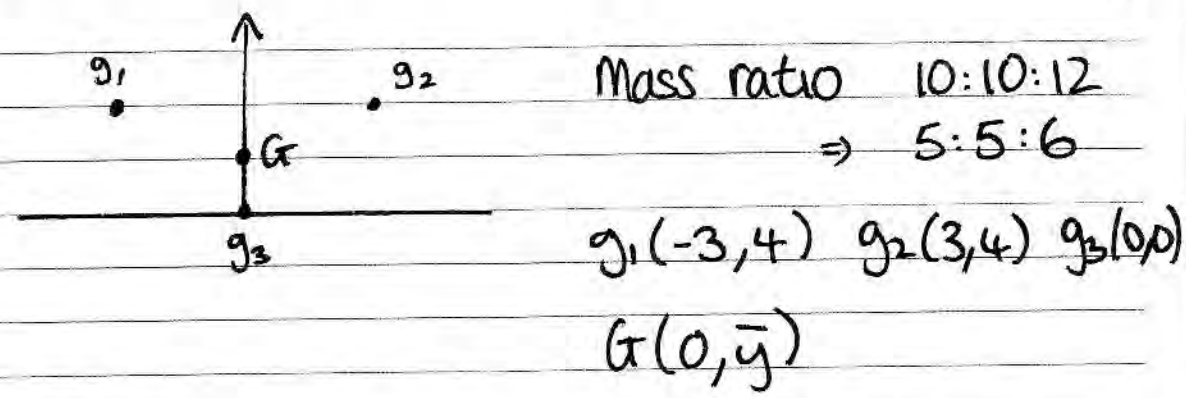 g₁ g₂ Mass ratio 10:10:12
G ⇒ 5:5:6
g₃ g₁(-3,4) g₂(3,4) g₃(0,0)
G(0,ȳ)